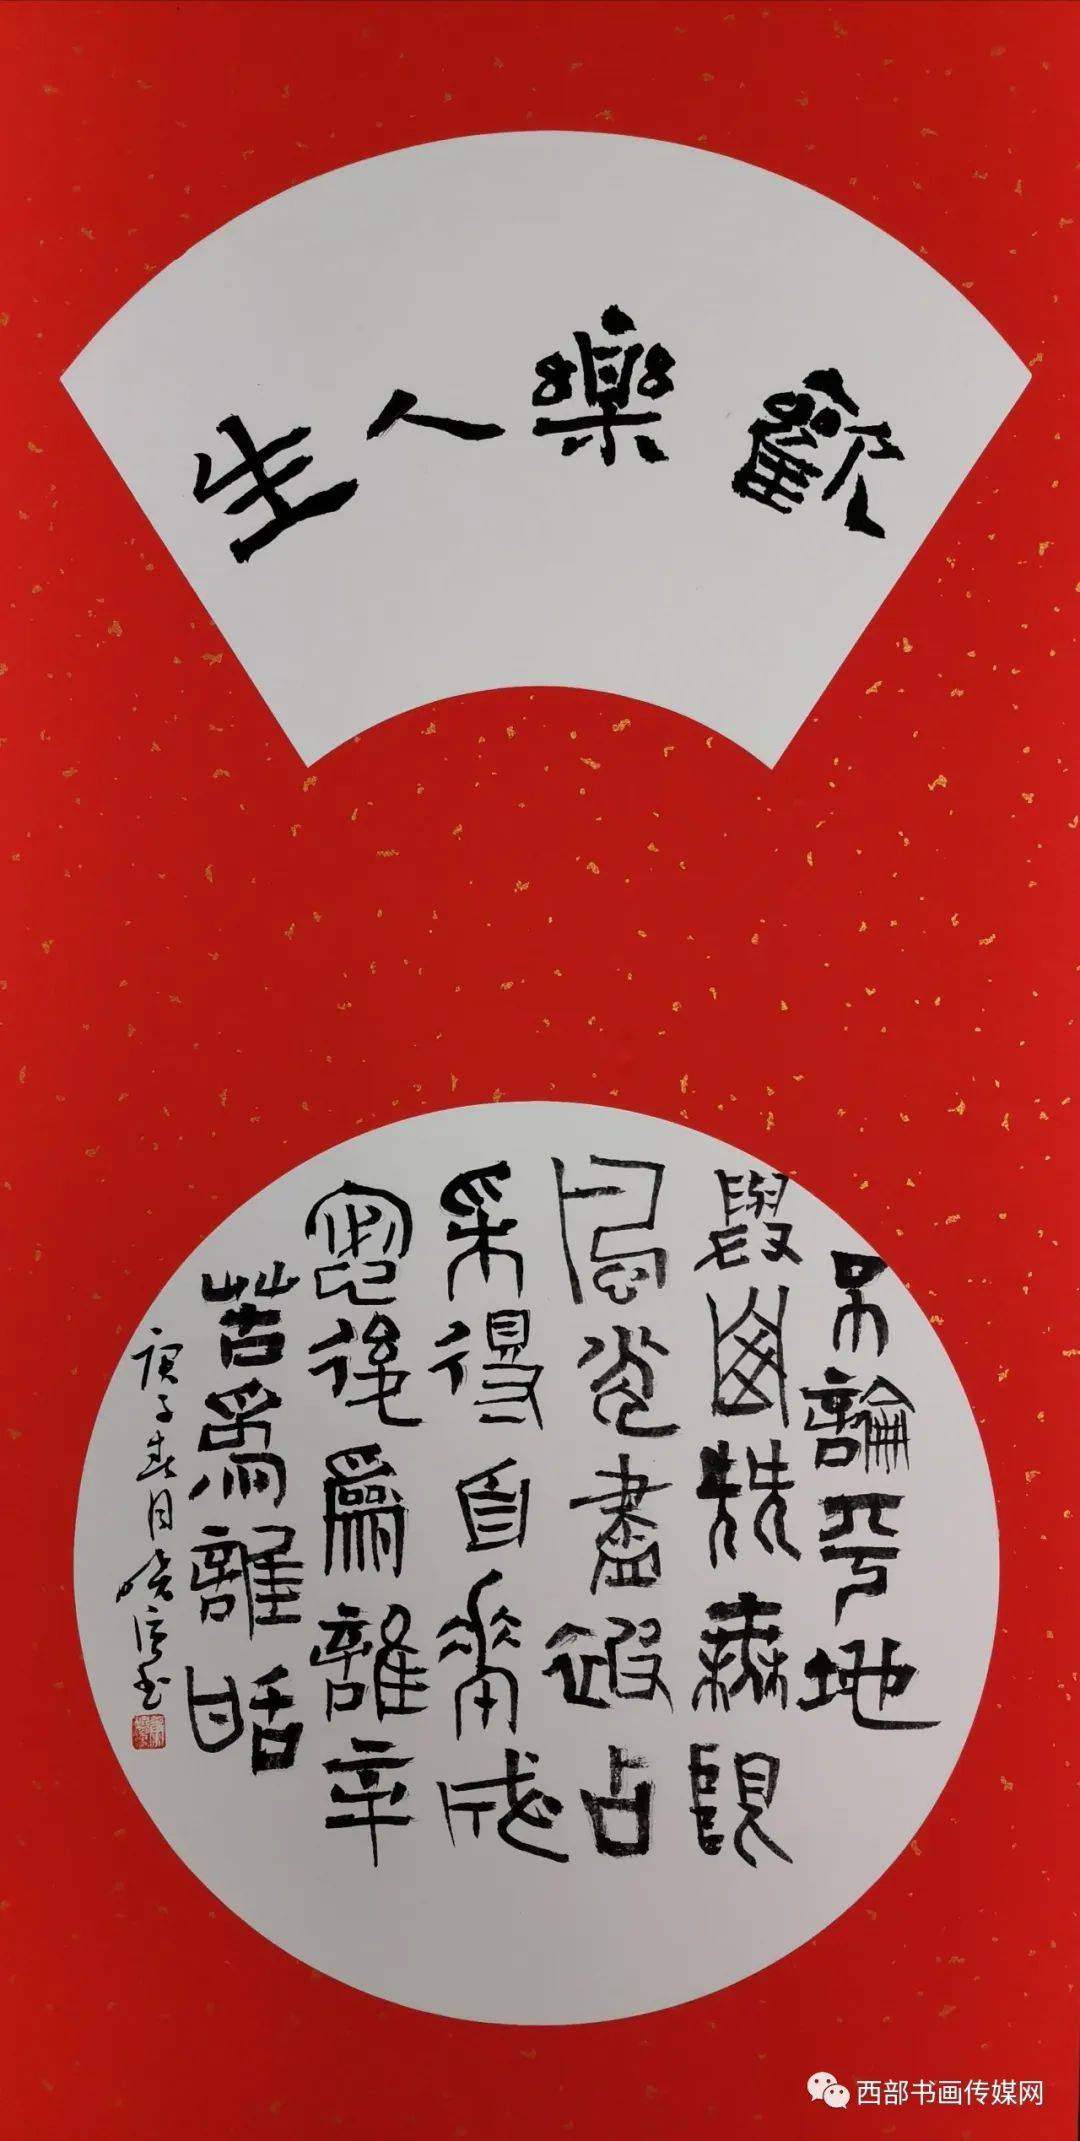 歡樂人生
不論平地
與山尖無限
風光盡遐占
采得百華成
蜜後為誰辛
苦為誰甜
庚子春月
西部书画传媒网